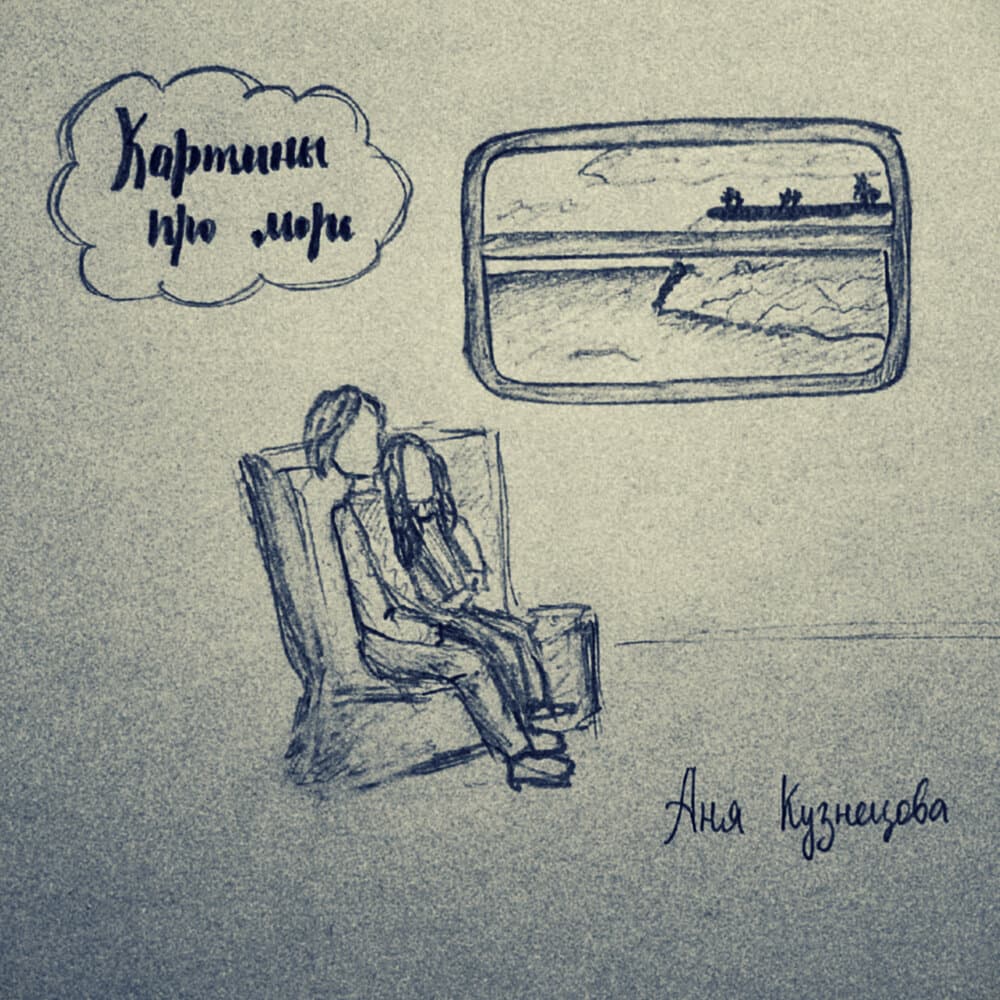 Картины
про море
Аня Кузнецова